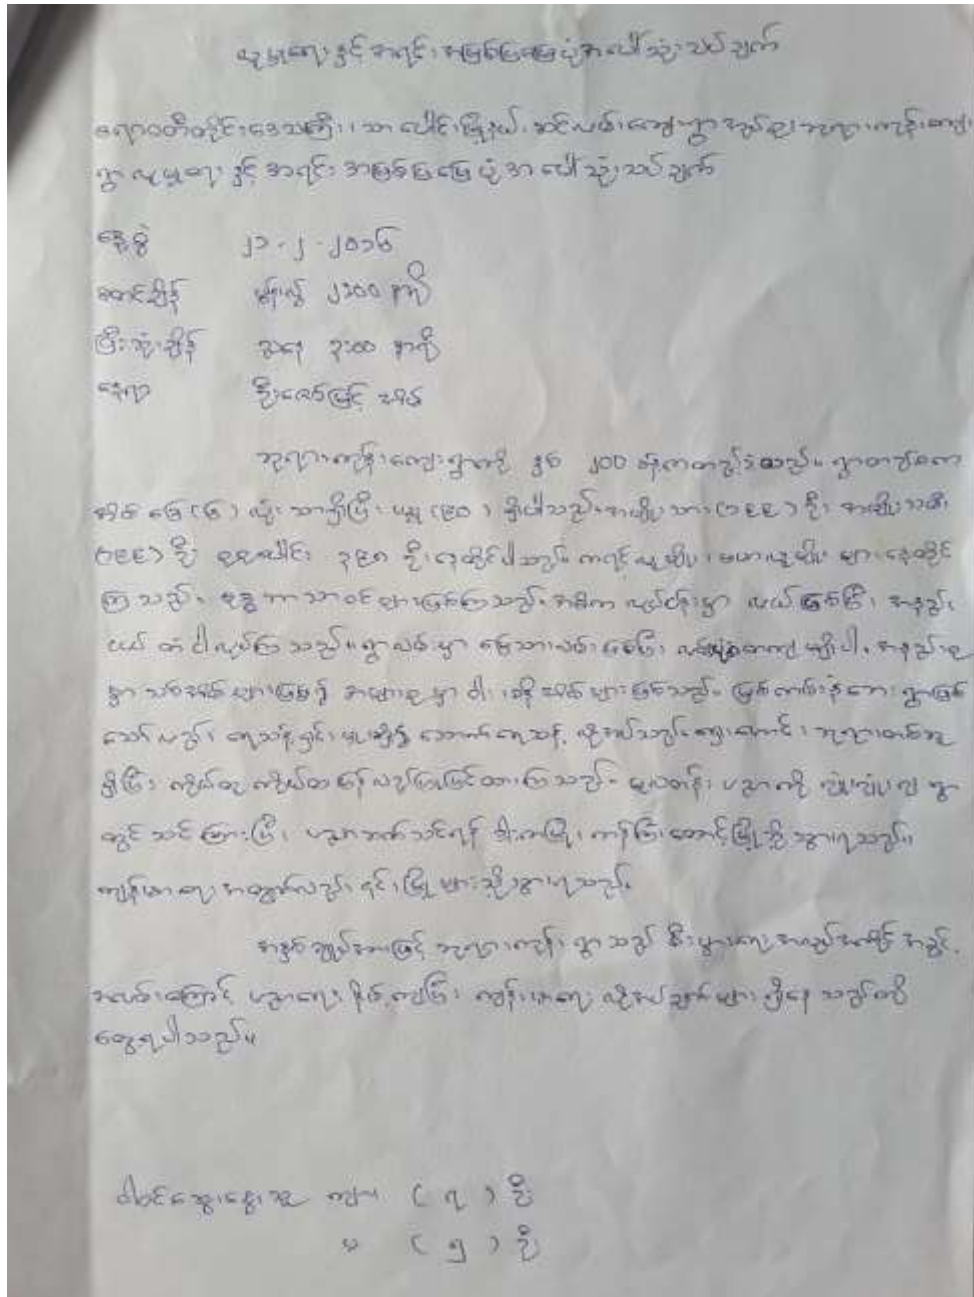 လူမှုရေးနှင့် အရင်းအမြစ်ပြမြေပုံအပေါ်သုံးသပ်ချက်
ဧရာဝတီတိုင်းဒေသကြီး၊ သာပေါင်းမြို့နယ်၊ ဆင်လမ်းကျေးရွာအုပ်စု၊ ဘုရားကုန်းကျေး
ရွာ လူမှုရေးနှင့် အရင်းအမြစ်ပြမြေပုံအပေါ်သုံးသပ်ချက်
နေ့စွဲ ၂၁-၂-၂၀၁၆
စတင်ချိန် မွန်းလွဲ ၂း၀၀ နာရီ
ပြီးဆုံးချိန် ညနေ ၃း၀၀ နာရီ
နေရာ ဦးဇော်မြင့် အိမ်
ဘုရားကုန်းကျေးရွာကို နှစ် ၂၀၀ ခန့်ကတည်ခဲ့သည်။ ရွာတည်စက
အိမ်ခြေ (၆) လုံးသာရှိပြီး ယခု (၉၀) ရှိပါသည်။ အမျိုးသား (၁၉၉) ဦး အမျိုးသမီး
(၁၉၉) ဦး စုစုပေါင်း ၃၉၈ ဦး နေထိုင်ပါသည်။ ကရင်လူမျိုး၊ ဗမာလူမျိုး များနေထိုင်
ကြသည်။ ဗုဒ္ဓဘာသာဝင်များဖြစ်ကြသည်။ အဓိက လုပ်ငန်းမှာ လယ်ဖြစ်ပြီး အနည်း
ငယ် တံငါလုပ်ကြသည်။ ရွာလမ်းမှာ မြေသားလမ်းဖြစ်ပြီး မရှိပါ။ အနည်းစု
မှာ သစ်အိမ်များဖြစ်၍ အများစုမှာ ဝါး၊ ဓနိအိမ်များဖြစ်သည်။ မြစ်ကမ်းနံဘေးရွာဖြစ်
သော်လည်း ရေသန့်ရှင်းမှုမရှိ၍ သောက်ရေသန့် လိုအပ်သည်။ ဘုရားတစ်ဆူ
ရှိပြီး ကိုယ်ထူကိုယ်ထ ပြန်လည်ပြုပြင်ထားကြသည်။ မူလတန်းပညာကို ရွာ
တွင် သင်ကြားပြီး ပညာဆက်သင်ရန် ဝါးတမြို့၊ ကန်ကြီးထောင့်မြို့သို့ သွားရသည်။
ကျန်းမာရေးအတွက်လည်း ၎င်းမြို့များသို့သွားရသည်။
အနှစ်ချုပ်အားဖြင့် ဘုရားကုန်းရွာသည် စီးပွားရေး အခွင့်
အလမ်းကြောင့် ပညာရေးနိမ့်ကျပြီး ကျန်းမာရေး လိုအပ်ချက်များ ရှိနေသည်ကို
တွေ့ရပါသည်။
ပါဝင်ဆွေးနွေးသူ ကျား (၇) ဦး
မ (၅) ဦး